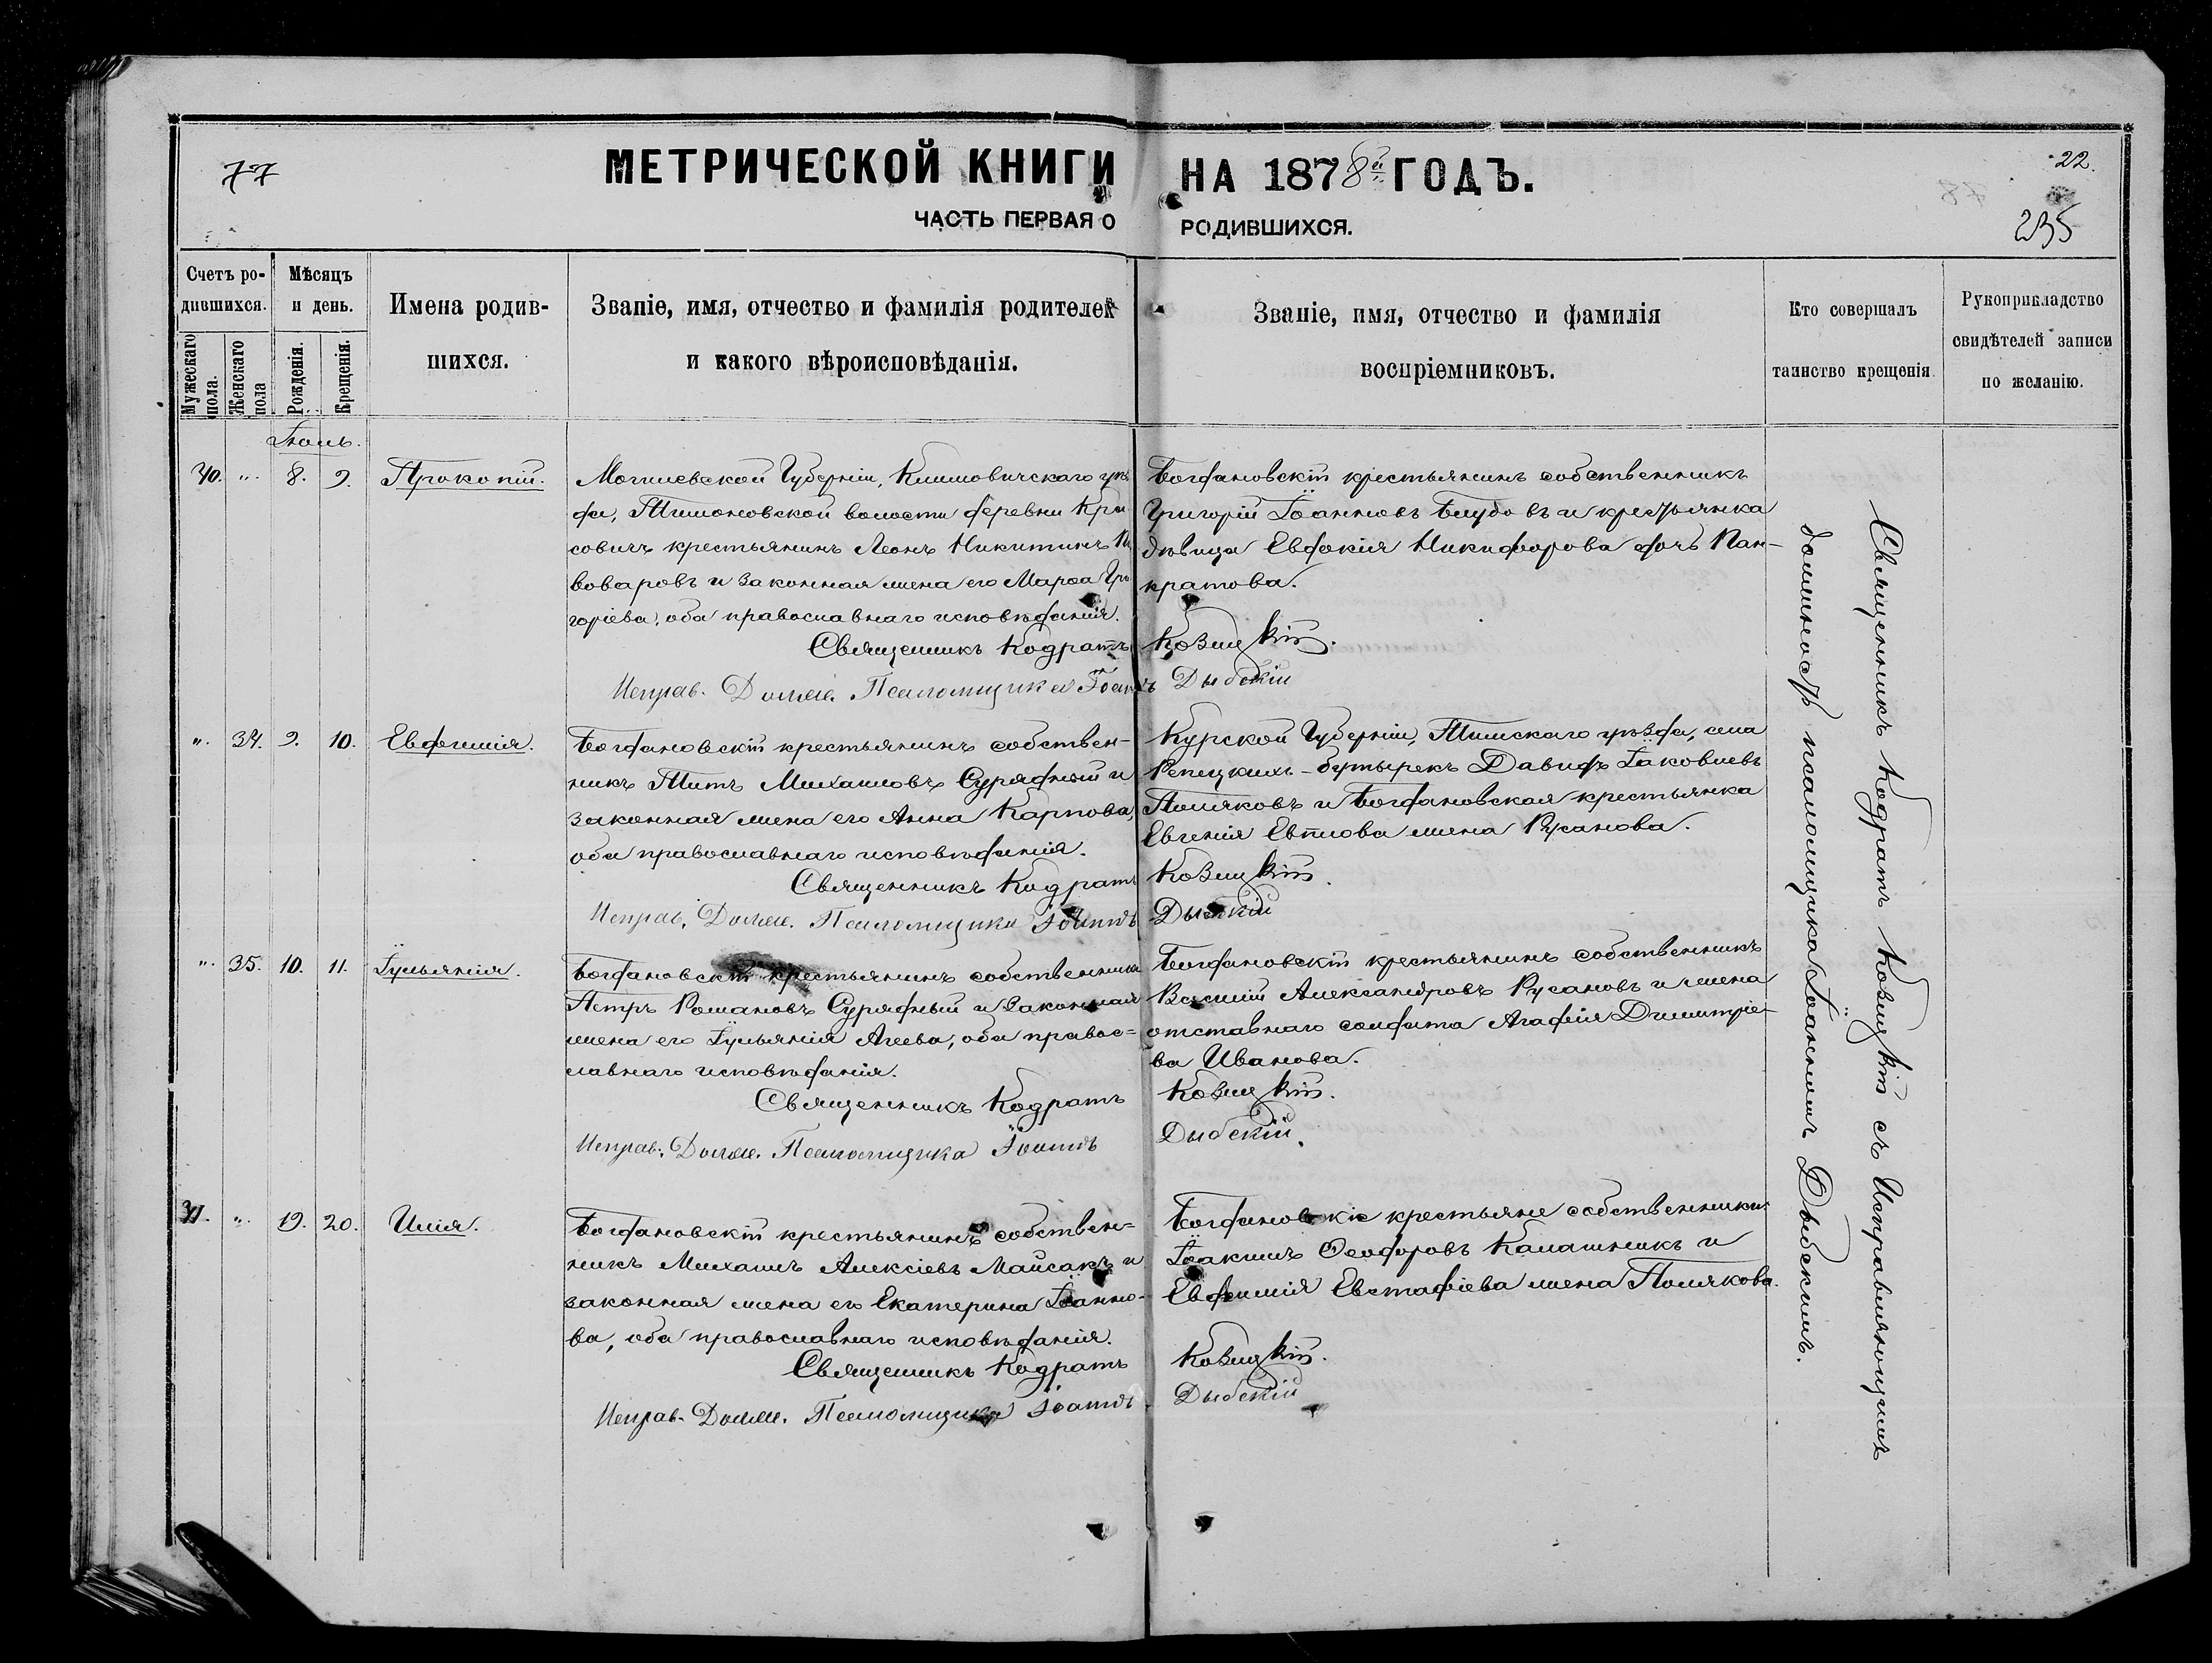 77
МЕТРИЧЕСКОЙ КНИГИ НА 1878й ГОДЪ.
22.
ЧАСТЬ ПЕРВАЯ О РОДИВШИХСЯ.
235
Счетъ ро-
дившихся.
Мужескаго пола.
Женскаго пола
Мѣсяцъ
и день.
Рожденія.
Крещенія.
Имена родив-
шихся.
Званіе, имя, отчество и фамилія родителей
и какого вѣроисповѣданія.
Званіе, имя, отчество и фамилія
воспріемниковъ.
Кто совершалъ
таинство крещенія.
Рукоприкладство
свидѣтелей записи
по желанію.
Іюль.
30. „. 8. 9. Прокопій.
Могилевской Губерніи, Климовичскаго уѣз
да, Тимоновской волости деревни Кри
совичъ крестьянинъ Леонъ Никитинъ Пи
воваровъ и законная жена его Марѳа Гри
горіева, оба православнаго исповѣданія.
Священникъ Кодратъ Ковицкій.
Исправ. Долж. Псаломщика Іоаннъ Дыбскій
Богдановскій крестьянинъ собственникъ
Григорій Іоанновъ Блудовъ и крестьянка
дѣвица Евдокія Никифорова дочь Пан-
кратова.
„. 34. 9. 10. Евфимія.
Богдановскій крестьянинъ собствен-
никъ Титъ Михаиловъ Сурядный и
законная жена его Анна Карпова,
оба православнаго исповѣданія.
Священникъ Кодратъ Ковицкій.
Исправ. Долж. Псаломщика Іоаннъ Дыбскій
Курской Губерніи, Тимскаго уѣзда, села
Репецкихъ-бутырекъ Давидъ Іаковлевъ
Поляковъ и Богдановская крестьянка
Евгенія Евплова жена Русанова.
„. 35. 10. 11. Іульянія.
Богдановскій крестьянинъ собственникъ
Петръ Романовъ Сурядный и законная
жена его Іульянія Агеева, оба правос=
лавнаго исповѣданія.
Священникъ Кодратъ Ковицкій.
Исправ. Долж. Псаломщика Іоаннъ Дыбскій.
Богдановскій крестьянинъ собственникъ
Василій Александровъ Русановъ и жена
отставнаго солдата Агафія Димитріе-
ва Иванова.
31. „. 19. 20. Илія.
Богдановскій крестьянинъ собствен=
никъ Михаилъ Алексіевъ Майсакъ и
законная жена его Екатерина Іоанно-
ва, оба православнаго исповѣданія.
Священникъ Кодратъ Ковицкій.
Исправ. Долж. Псаломщика Іоаннъ Дыбскій
Богдановскіе крестьяне собственники
Іоакимъ Ѳеодоровъ Калашникъ и
Евфимія Евстафіева жена Полякова.
Священникъ Кодратъ Ковицкій съ Исправляющимъ
должность псаломщика Іоанномъ Дыбскимъ.